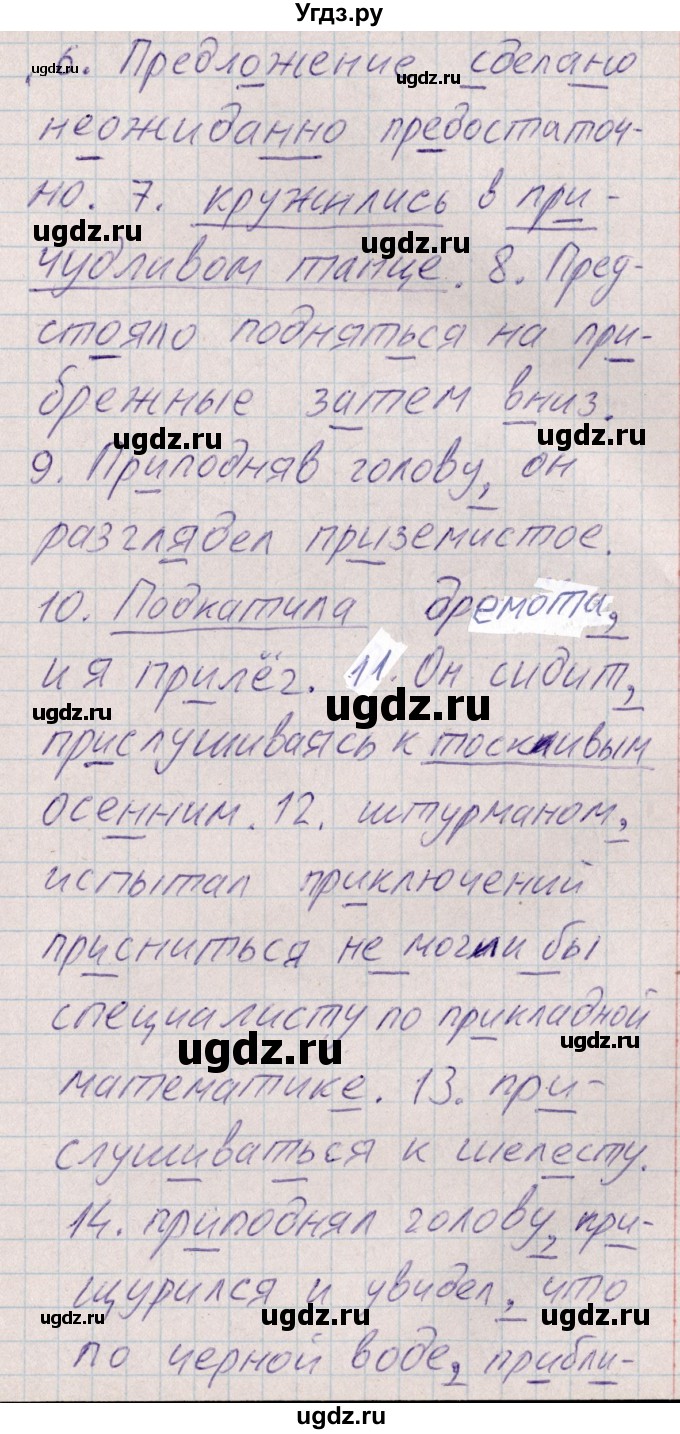 Угдз.ру
6. Предложение сделано
неожиданно предостаточ-
но. 7. кружились в при-
чудливом танце. 8. Пред-
стояло подняться на при-
брежные затем вниз.
9. Приподняв голову, он
разглядел приземистое.
10. Подкатила дремота,
и я прилёг. 11. Он сидит,
прислушиваясь к тоскливым
осенним. 12. штурманом,
испытал приключений
присниться не могли бы
специалисту по прикладной
математике. 13. при-
слушиваться к шелесту.
14. приподнял голову, при-
щурился и увидел, что
по черной воде, прибли-
ugdz.ru